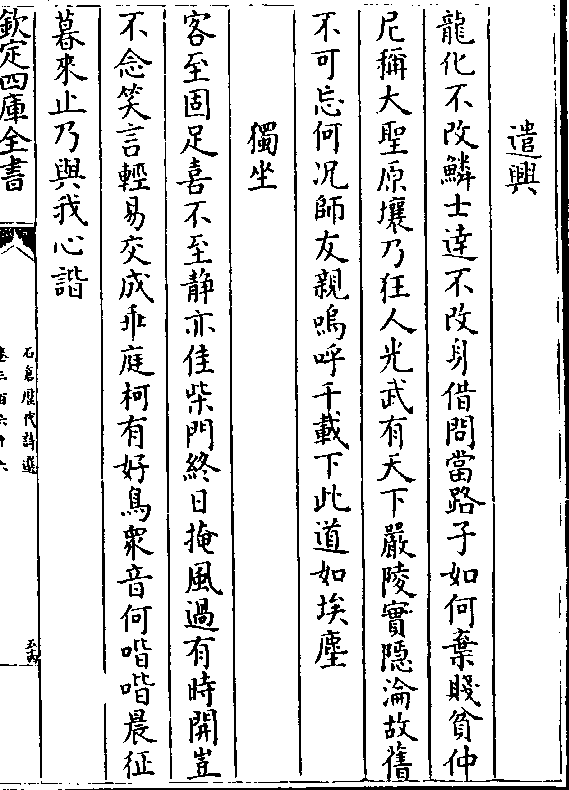 遣興
龍化不改鱗士逹不改身借問當路子如何棄賤貧仲
尼稱大聖原壤乃狂人光武有天下嚴陵實隱淪故舊
不可忘何况師友親嗚呼千載下此道如埃塵
獨坐
客至固足喜不至静亦佳柴門終日掩風過有時開豈
不念笑言輕易交成乖庭柯有好鳥衆音何喈喈晨征
暮來止乃與我心諧
欽定四庫全書
石倉歴代詩選